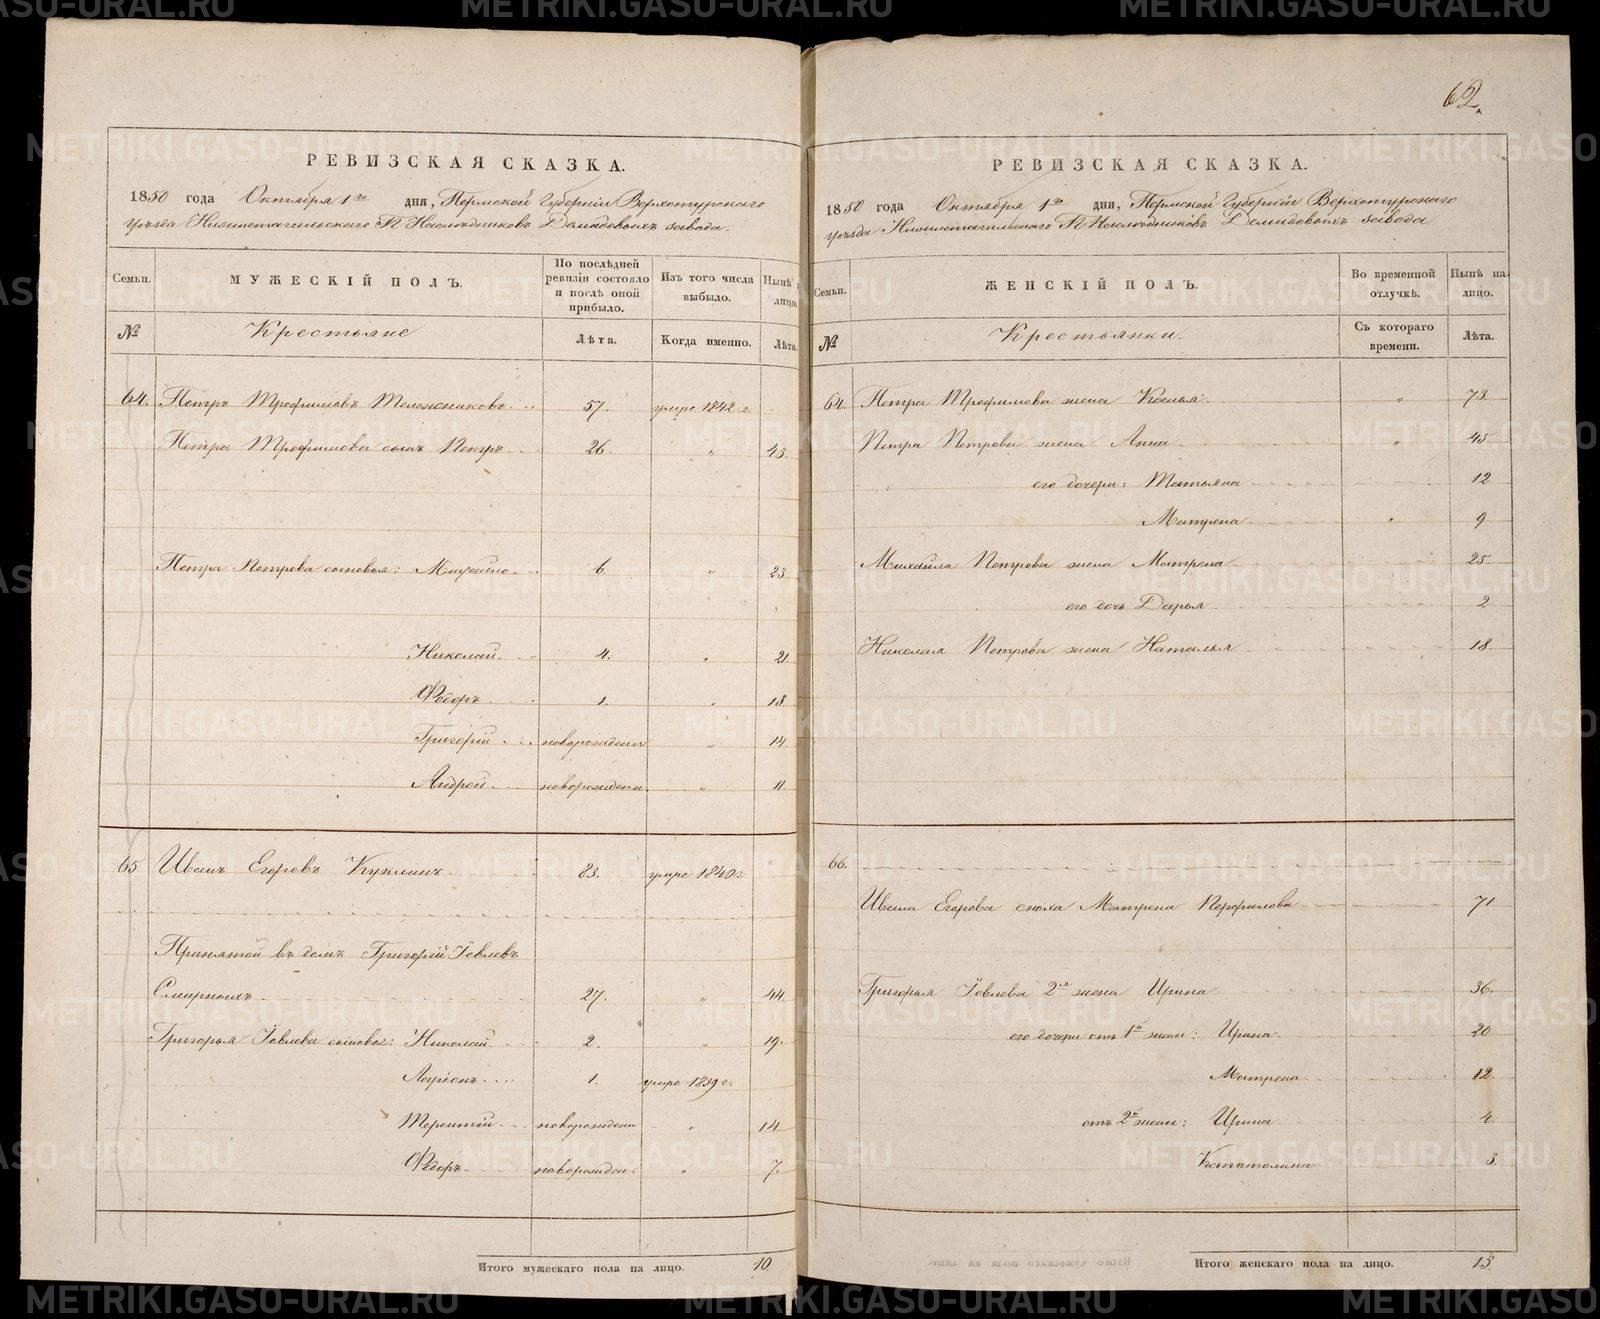 62
РЕВИЗСКАЯ СКАЗКА.
1850 года Октября 1го дня, Пермской Губерніи Верхотурскаго
уѣзда Нижнетагильскаго Г.г. Наслѣдниковъ Демидовыхъ завода.
Семьи. МУЖЕСКІЙ ПОЛЪ. По послѣдней ревизіи состояло и послѣ оной прибыло. Изъ того числа выбыло. Нынѣ на лицо.
№ Крестьяне Лѣта. Когда именно. Лѣта.
64. Петръ Трофимовъ Тележниковъ 57. умре 1842 г.
Петра Трофимова сынъ Петръ 26. " 43.
Петра Петрова сыновья: Михайло 6 " 23
Николай 4. " 21.
Федоръ 1. " 18
Григорій новорожденн " 14.
Андрей новорожденн. " 11.
65 Иванъ Егоровъ Куклинъ 83. умре 1840 г
Принятой въ домъ Григорій Іовлевъ
Смирныхъ 27. " 44.
Григорья Іовлева сыновья: Николай 2. " 19.
Ларіонъ 1. умре 1839 г.
Терентій новорожденн " 14
Федоръ новорожден. " 7.
Итого мужескаго пола на лицо. 10
РЕВИЗСКАЯ СКАЗКА.
1850 года Октября 1го дня, Пермской Губерніи Верхотурскаго
уѣзда Нижнетагильскаго Г.г. Наслѣдниковъ Демидовыхъ завода
Семьи. ЖЕНСКІЙ ПОЛЪ. Во временной отлучкѣ. Нынѣ на лицо.
№ Крестьянки. Съ котораго времени. Лѣта.
64. Петра Трофимова жена Ксенья " 73
Петра Петрова жена Анна " 45.
его дочери: Татьяна 12
Матрена " 9
Михайла Петрова жена Матрена 25.
его дочь Дарья 2
Николая Петрова жена Наталья 18
66.
Ивана Егорова сноха Матрена Перфилова 71
Григорья Іовлева 2я жена Ирина 36.
его дочери отъ 1й жены: Ирина 20
Матрена 12.
отъ 2й жены: Ирина 4
Капитолина 3.
Итого женскаго пола на лицо. 13.
METRIKI.GASO-URAL.RU